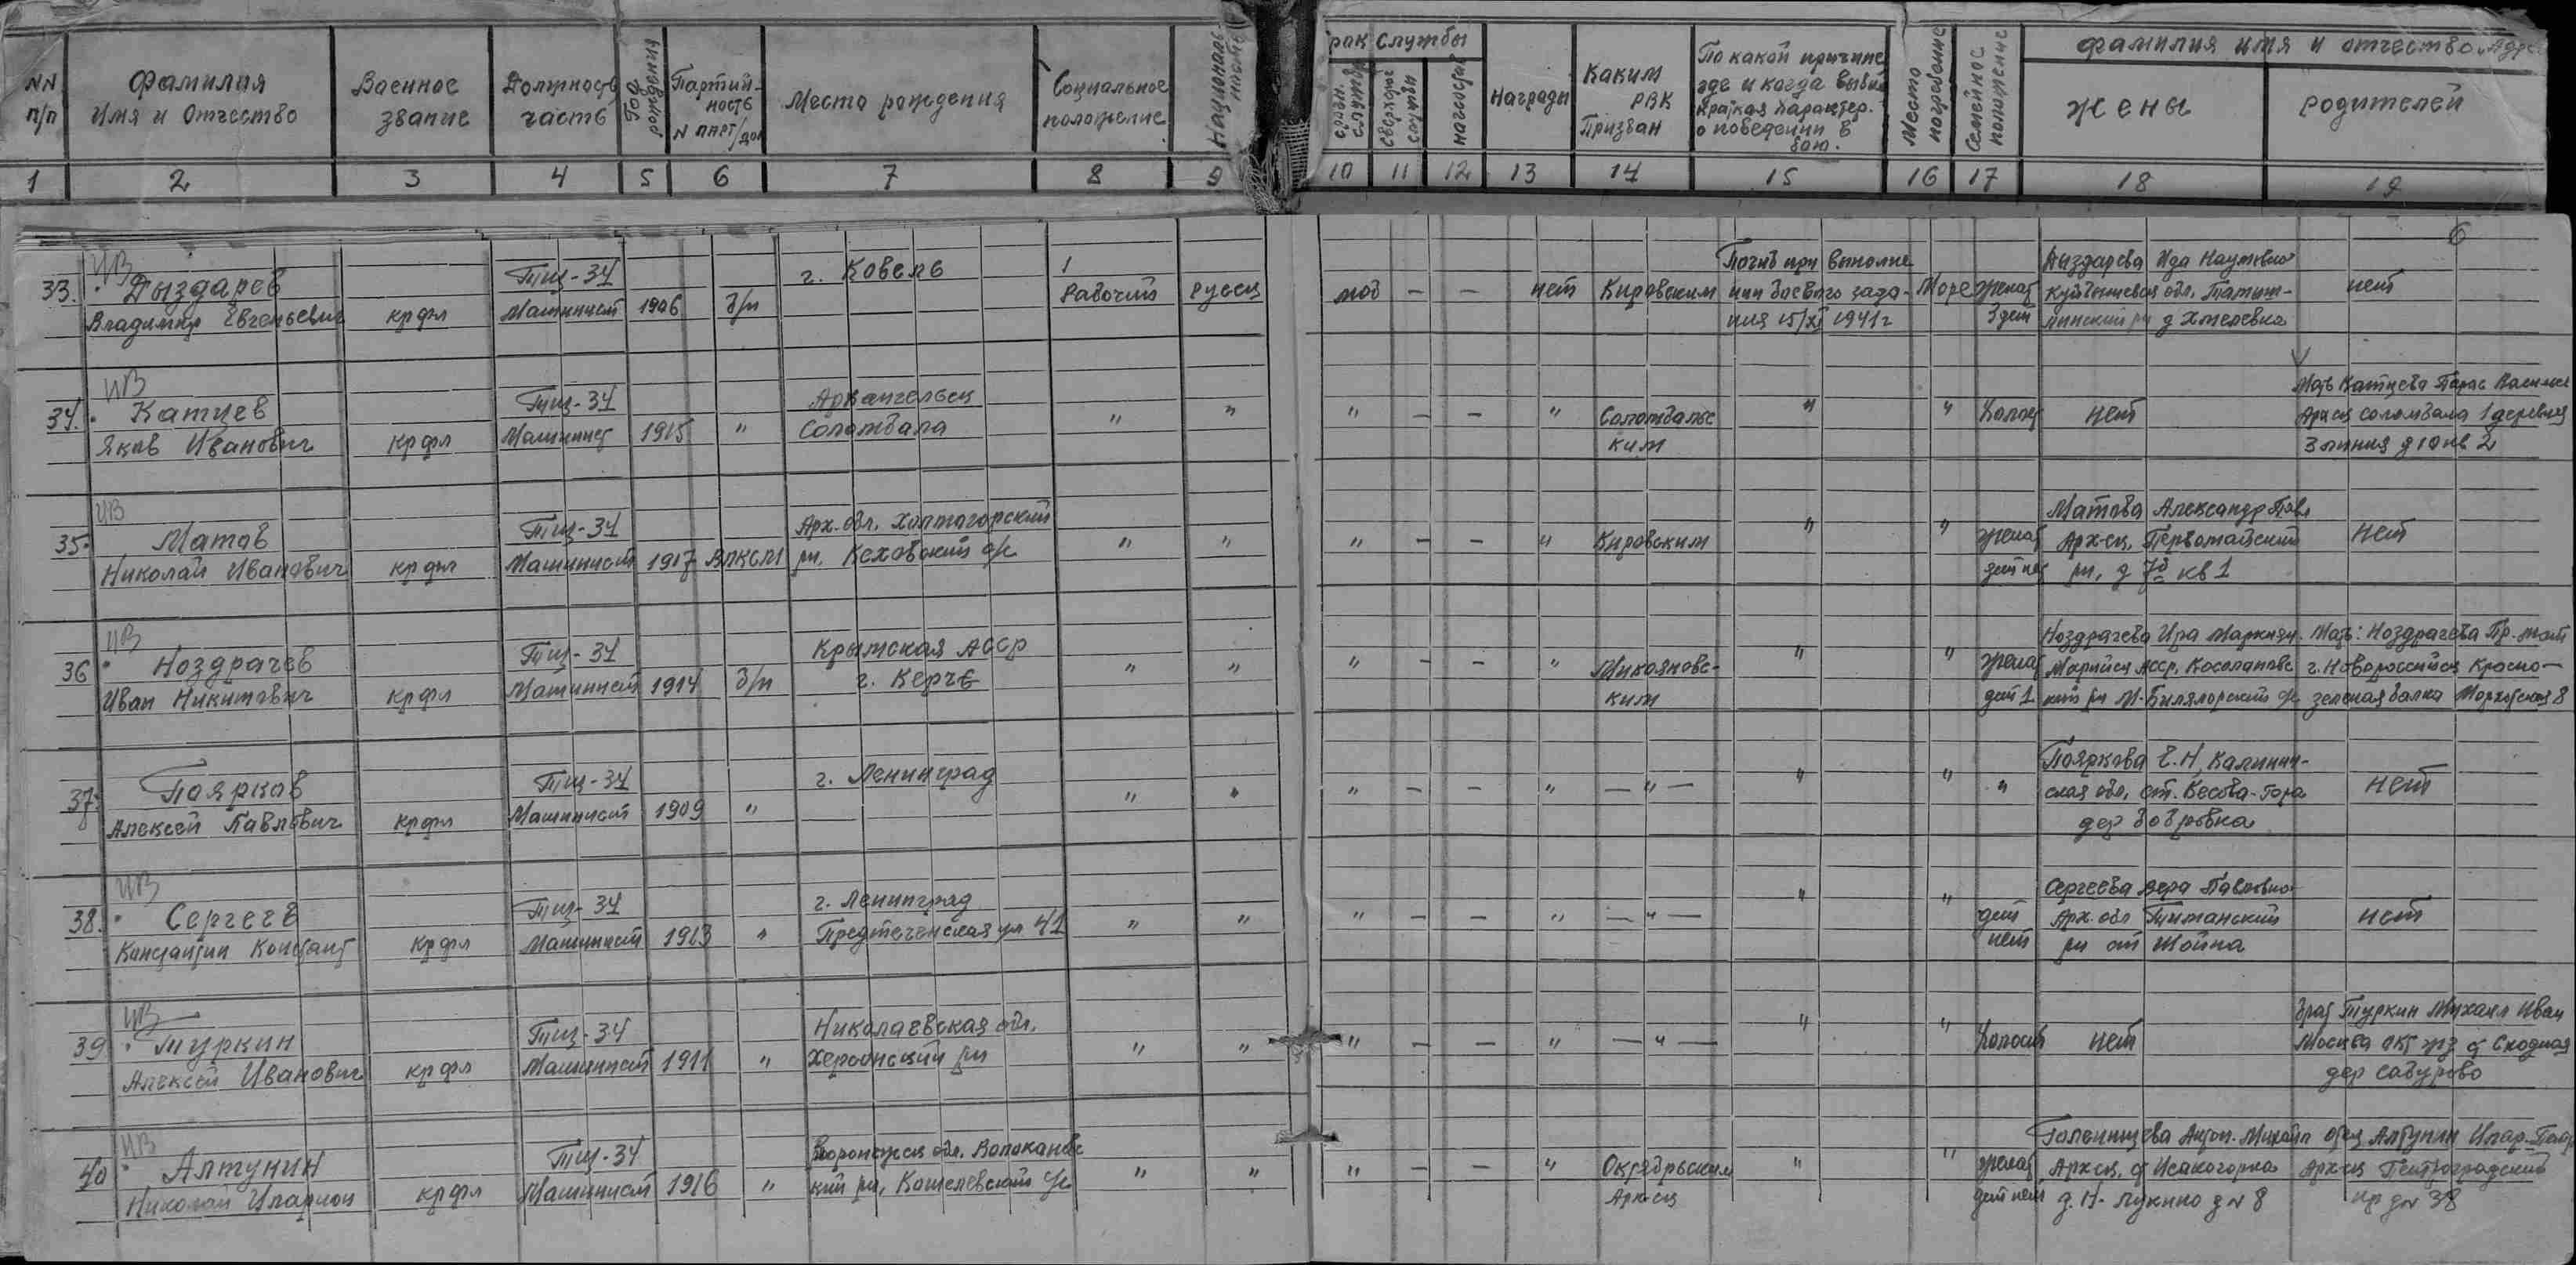 NN п/п
Фамилия Имя и Отчество
Военное звание
Должность часть
Год рождения
Партийность N парт/док
Место рождения
Социальное положение
Национальность
срок службы
срочн. службы
сверхсроч службы
Награды
Каким РВК Призван
По какой причине где и когда выбыл Краткая характер. о поведении в бою.
Место погребение
Семейное положение
фамилия имя и отчество. Адрес
жены
родителей
1 2 3 4 5 6 7 8 9 10 11 12 13 14 15 16 17 18 19
6
ИВ
Тщ-34 г. Ковель Погиб при выполне Дыздарева Ида Наумовна
33. Дыздарев Рабочий Русск моб - - нет Кировским нии боевого зада- Море женат Куйбышевск обл. нет
Владимир Евгеньевич крфл Машинист 1906 б/п ния 15/XI 1941г 3 дет рн д Хмелевка
ИВ
Тщ-34 Архангельск Мать Катцева
34. Катцев " " " - - " Соломбальс " " Холост нет Архск Соломбала 1 деревня
Яков Иванович крфл Машинист 1915 " Соломбала ким Зимняя д 10 кв 2
ИВ
Тщ-34 Арх. обл. Холмогорский Матова Александр Павл
35. Матов " " " - - " Кировским " " женат Арх-ск, Первомайский нет
Николай Иванович крфл Машинист 1917 ВЛКСМ рн, Кеховский с/с дет нет рн, д 7б кв 1
ИВ
Тщ-34 Крымская АССР Ноздрачева Ира Мать: Ноздрачева
36 Ноздрачев " " " - - " Микояновс- " " женат Марийск АССР, г. Новороссийск Красно-
Иван Никитович крфл Машинист 1914 б/п г. Керчь ким дет 1 рн с/с зеленая балка 8
Тщ-34 г. Ленинград Пояркова Е.Н, Калинин-
37. Поярков " " " - - " - " - " " " ская обл, ст. Кесова-Гора нет
Алексей Павлович крфл Машинист 1909 " дер Бобровка
ИВ
Тщ-34 г. Ленинград Сергеева Вера Павловна
38. Сергеев " " " - - " - " - " " дет Арх. обл Тиманский нет
Константин Констант крфл Машинист 1913 " Предтеченская ул 41 нет рн ст Шойна
ИВ
Тщ-34 Николаевская обл. Брат Туркин Михаил Иван
39. Туркин " " " - - " - " - " " Холост нет Москва окт жд ст Сходная
Алексей Иванович крфл Машинист 1911 " Херсонский рн дер Сабурово
ИВ
Тщ-34 Воронежск обл. Волоконовс Голенищева Антон. Михайл отец Алтунин Илар.
40 Алтунин " " " - - " Октябрьским " " женат Архск, ст Исакогорка Архск Петроградский
Николай Иларион крфл Машинист 1916 " кий рн, Кошелевский с/с Архск дет нет д. Н. Лукино д N 8 пр д N 38